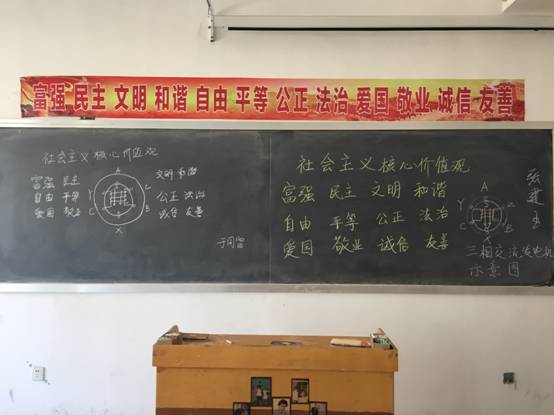 富强 民主 文明 和谐 自由 平等 公正 法治 爱国 敬业 诚信 友善
社会主义核心价值观
富强 民主 文明 和谐
自由 平等 公正 法治
爱国 敬业 诚信 友善
A
Y
C
B
X
社会主义核心价值观
富强 民主 文明 和谐
自由 平等 公正 法治
爱国 敬业 诚信 友善
A
Y
Z
C
B
X
三相交流发电机
示意图